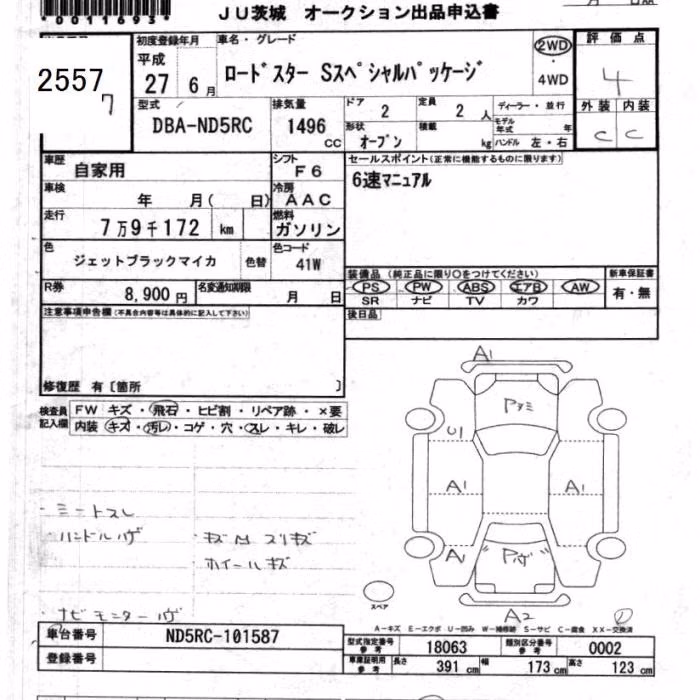 *0011693*
JU茨城 オークション出品申込書
2557
7
初度登録年月
平成
27 6月
車名・グレード
ロードスター Sスペシャルパッケージ
2WD
・
4WD
評価点
4
外装 内装
C C
型式
DBA-ND5RC
排気量
1496
CC
ドア
2
定員
2 人
ディーラー・並行
モデル年式 年
形状
オープン
積載
kg
ハンドル 左・右
車歴
自家用
シフト
F6
セールスポイント(正常に機能するものに限ります)
6速マニュアル
車検
年 月( 日)
冷房
AAC
走行
7万9千172 km
燃料
ガソリン
色
ジェットブラックマイカ
色替
色コード
41W
装備品 (純正品に限り○をつけてください)
PS ・ PW ・ ABS ・ エアB ・ AW ・
SR ナビ TV カワ
新車保証書
有・無
R券
8,900円
名変通知期限
月 日
後日品
注意事項申告欄(不具合内容等は具体的に記入して下さい)
修復歴 有〔箇所 〕
検査員記入欄
FW キズ・飛石・ヒビ割・リペア跡・×要
内装 キズ・汚レ・コゲ・穴・スレ・キレ・破レ
A1
U1
A1
A1
A1
A2
・シートスレ
・ハンドルハゲ
・キズM スリキズ
ホイールキズ
・ナビモニターハゲ
スペア
A－キズ E－エクボ U－凹み W－補修跡 S－サビ C－腐食 XX－交換済
車台番号
ND5RC-101587
登録番号
型式指定番号
参考
18063
類別区分番号
参考
0002
車庫証明用
参考
長さ
391 cm
幅
173 cm
高さ
123 cm